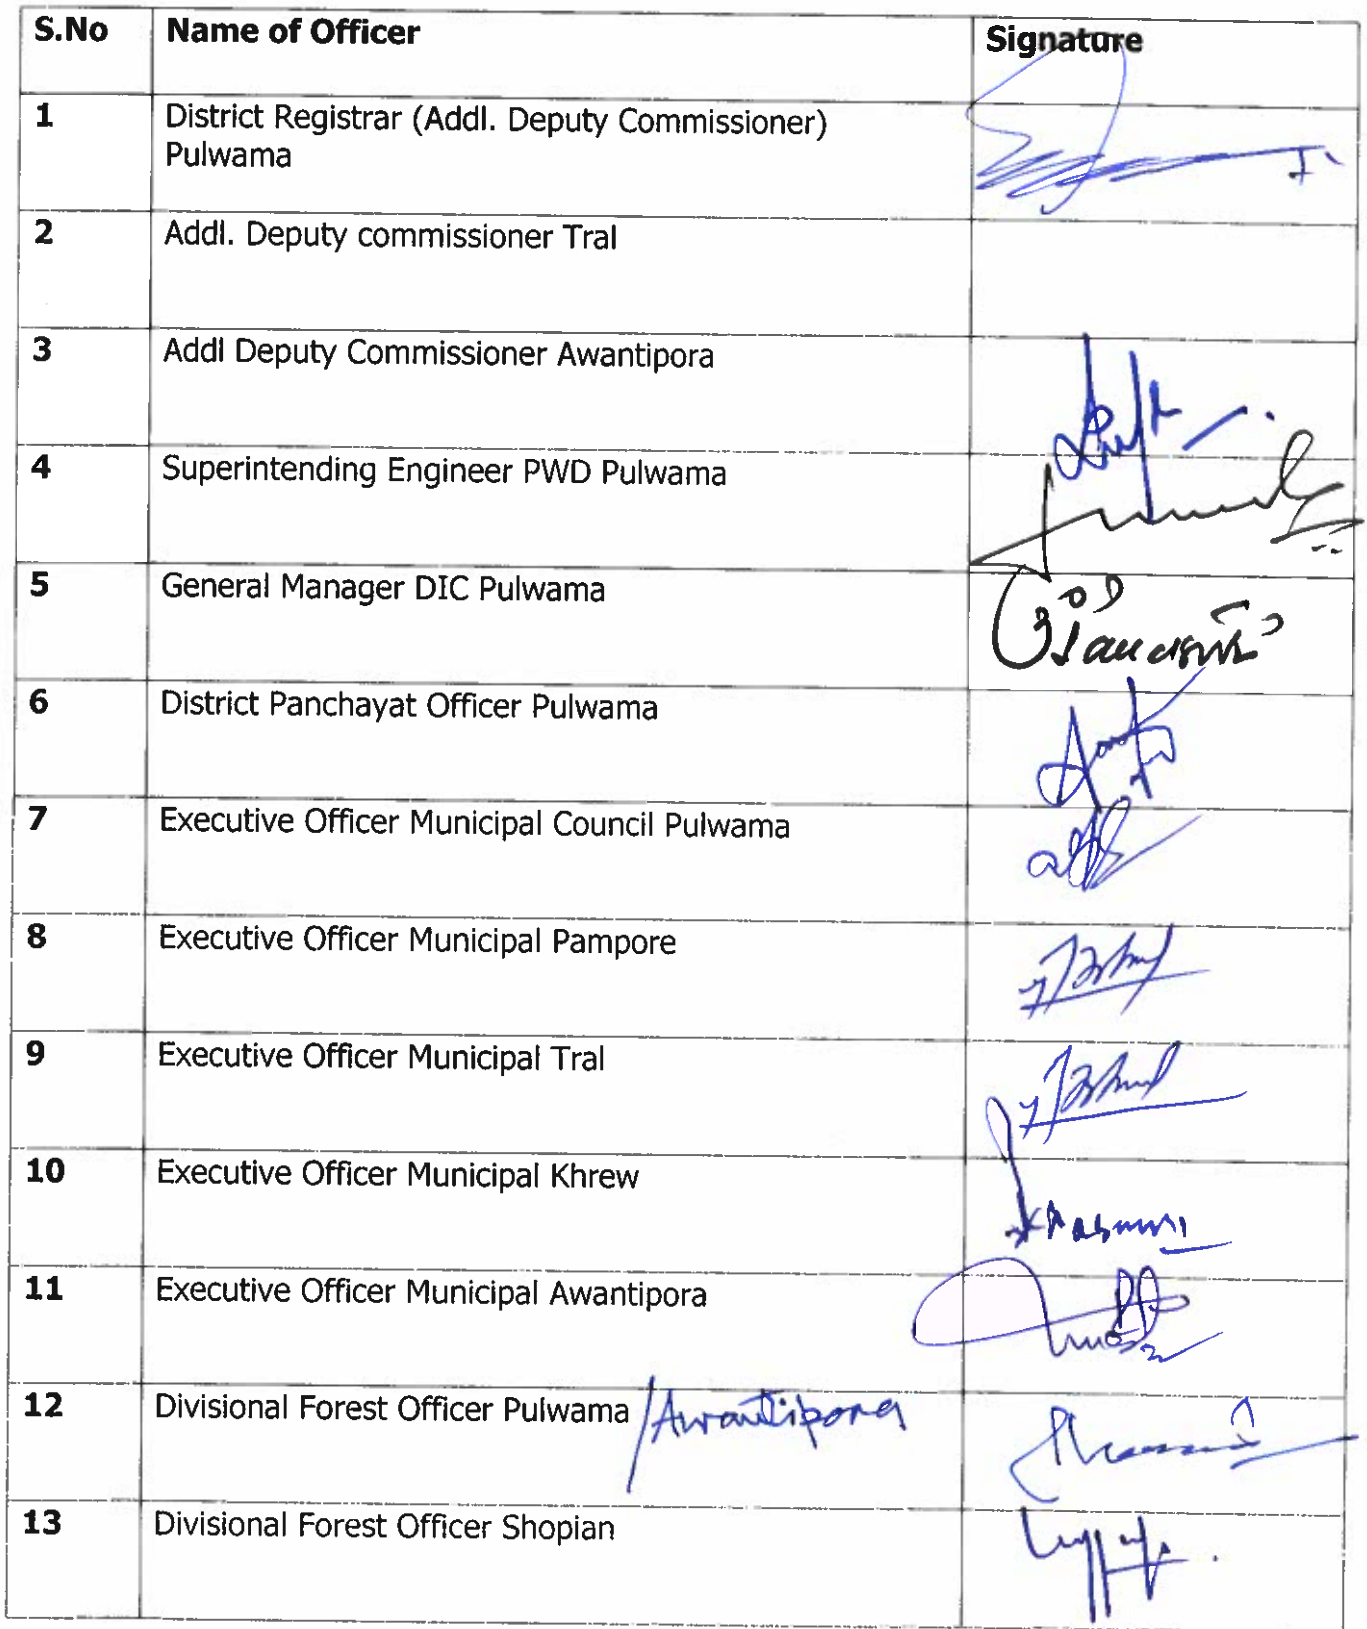 S.No Name of Officer Signature
1 District Registrar (Addl. Deputy Commissioner)
Pulwama
2 Addl. Deputy commissioner Tral
3 Addl Deputy Commissioner Awantipora
4 Superintending Engineer PWD Pulwama
5 General Manager DIC Pulwama
6 District Panchayat Officer Pulwama
7 Executive Officer Municipal Council Pulwama
8 Executive Officer Municipal Pampore
9 Executive Officer Municipal Tral
10 Executive Officer Municipal Khrew
11 Executive Officer Municipal Awantipora
12 Divisional Forest Officer Pulwama /Awantipora
13 Divisional Forest Officer Shopian